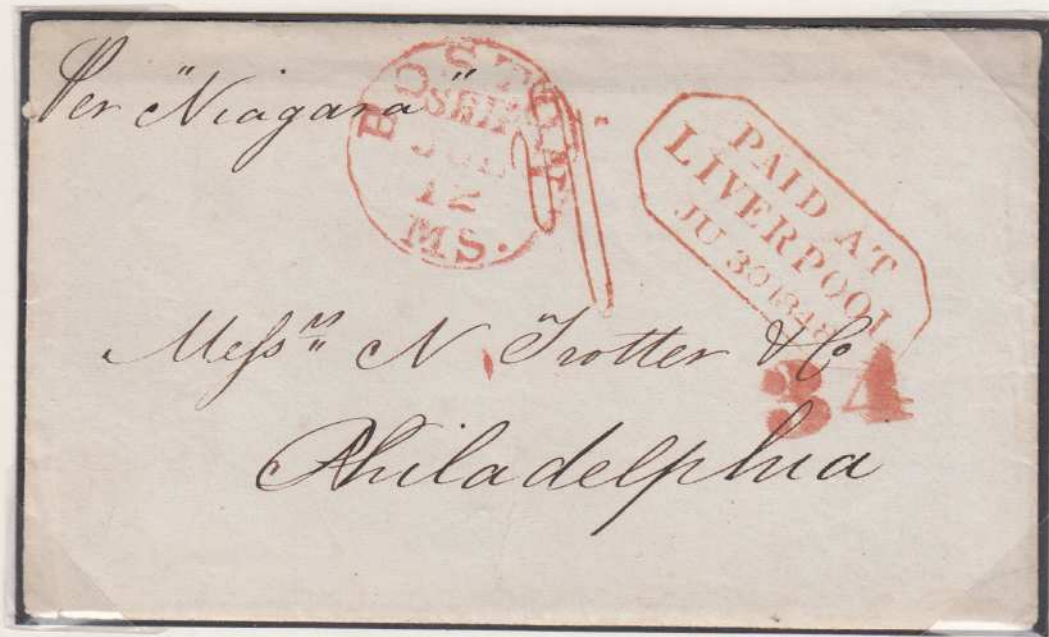 Per "Niagara"
BOSTON
SHIP
JUL
12
MS.
1/
PAID AT
LIVERPOOL
JU 30 1848
Messrs N Trotter & Co
34
Philadelphia